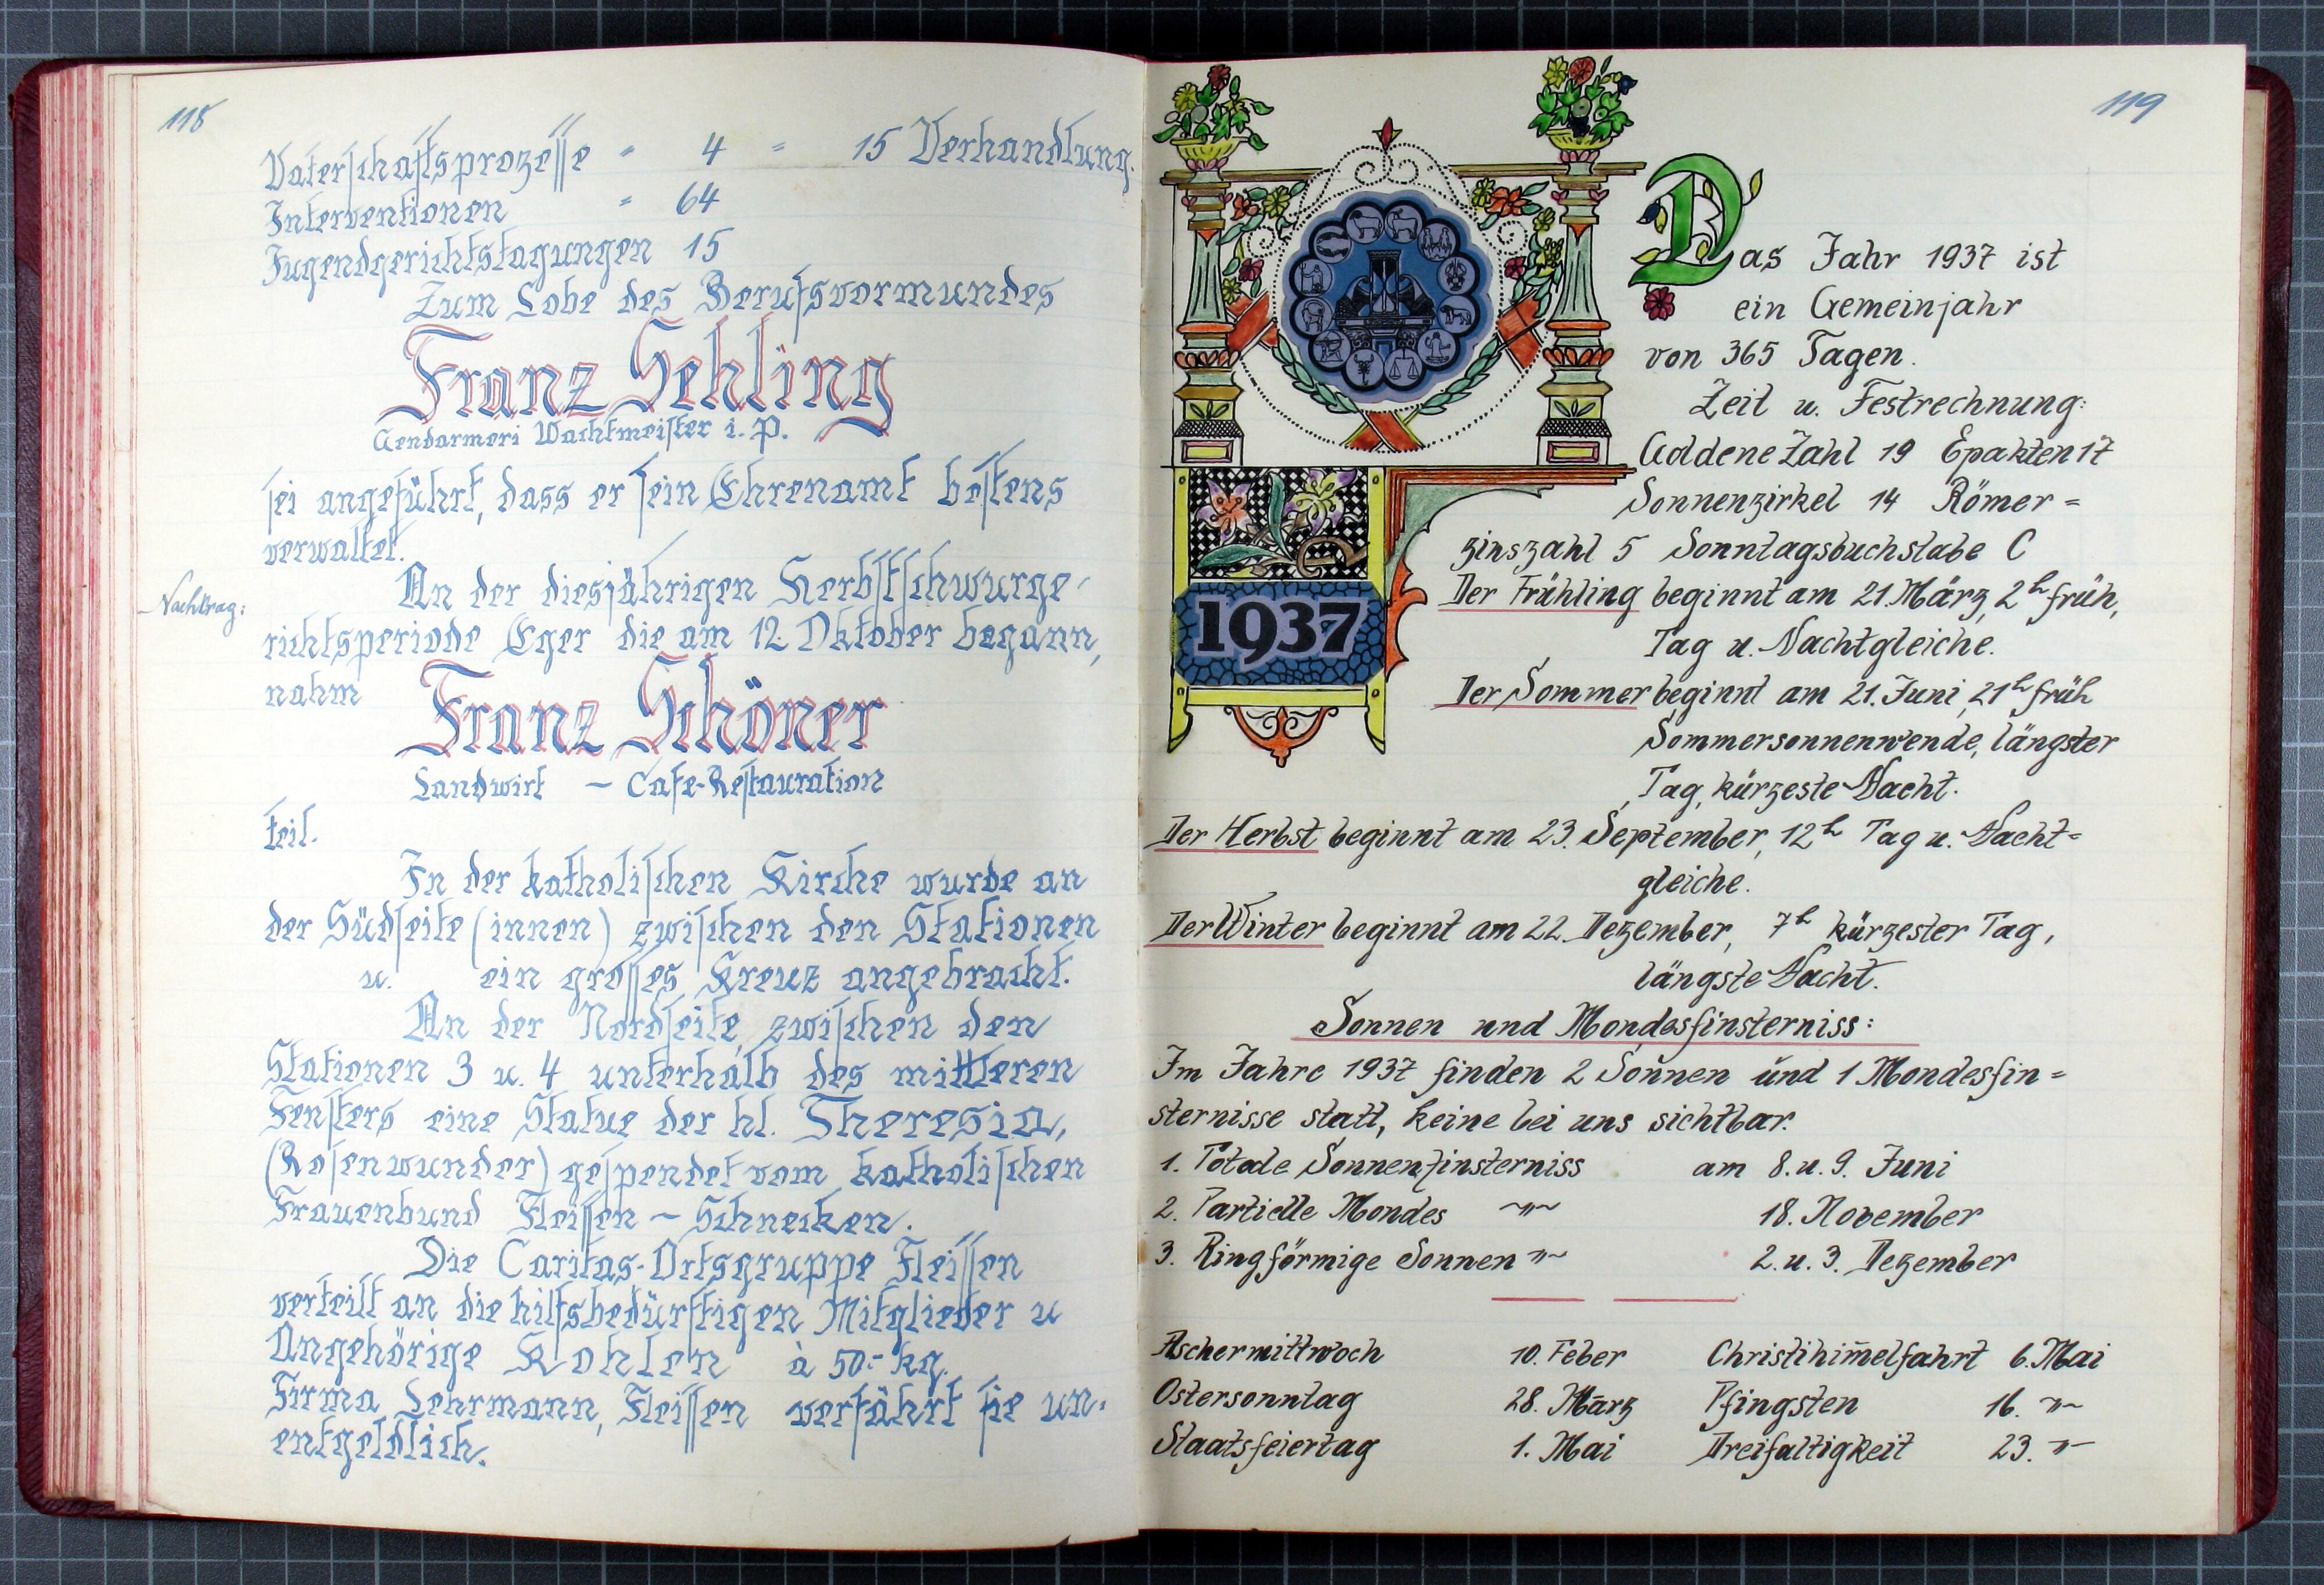 118
Vaterschaftsprozesse " 4 " 15 Verhandlung.
Interventionen " 64
Jugendgerichtstagungen 15
Zum Lobe des Berufsvormundes
Franz Sehling
Gendarmeri Wachtmeister i. P.
sei angeführt, dass er sein Ehrenamt bestens
verwaltet.
Nachtrag:
An der diesjährigen Herbstschwurge-
richtsperiode Eger die am 12. Oktober begann,
nahm
Franz Schöner
Landwirt – Cafe-Restauration
teil.
In der katholischen Kirche wurde an
der Südseite (innen) zwischen den Stationen
u. ein grosses Kreuz angebracht.
An der Nordseite, zwischen den
Stationen 3 u. 4 unterhalb des mittleren
Fensters eine Statue der hl. Theresia,
(Rosenwunder) gespendet vom katholischen
Frauenbund Fleissen – Schnecken.
Die Caritas-Ortsgruppe Fleissen
verteilt an die hilfsbedürftigen Mitglieder u
Angehörige Kohlen à 50.- kg.
Firma Lehrmann, Fleissen verfährt sie un-
entgeldlich.
119
1937
Das Jahr 1937 ist
ein Gemeinjahr
von 365 Tagen.
Zeit u. Festrechnung:
Goldene Zahl 19 Epakten 17
Sonnenzirkel 14 Römer=
zinszahl 5 Sonntagsbuchstabe C
Der Frühling beginnt am 21. März, 2h früh,
Tag u. Nachtgleiche.
Der Sommer beginnt am 21. Juni, 21h früh
Sommersonnenwende, längster
Tag, kürzeste Nacht.
Der Herbst beginnt am 23. September, 12h Tag u. Nacht=
gleiche.
Der Winter beginnt am 22. Dezember, 7h kürzester Tag,
längste Nacht.
Sonnen und Mondesfinsterniss:
Im Jahre 1937 finden 2 Sonnen und 1 Mondesfin=
sternisse statt, keine bei uns sichtbar.
1. Totale Sonnenfinsterniss am 8. u. 9. Juni
2. Partielle Mondes ~"~ 18. November
3. Ringförmige Sonnen "~ 2. u. 3. Dezember
Aschermittwoch 10. Feber Christihim̄elfahrt 6. Mai
Ostersonntag 28. März Pfingsten 16. "~
Staatsfeiertag 1. Mai Dreifaltigkeit 23. "~